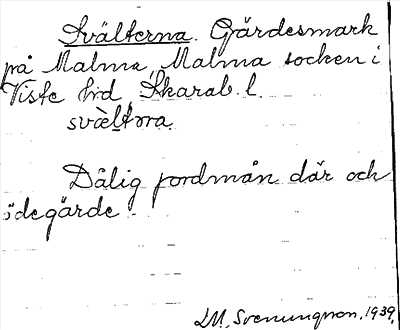 Svälterna. Gärdesmark
på Malma, Malma socken i
Viste hrd, Skarab. l.
svæltɷrna.
Dålig jordmån där och
ödegärde.
LM. Svenungsson. 1939.